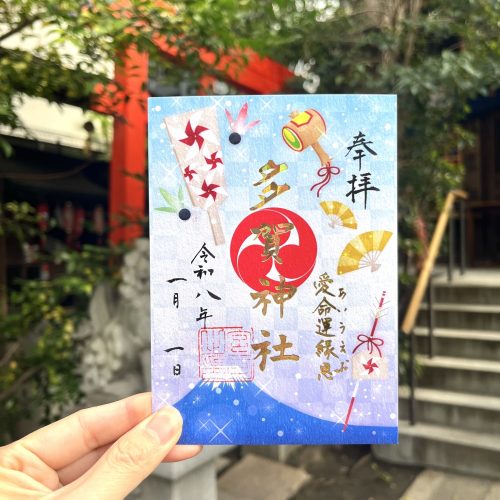 奉拝
多賀神社
愛命運縁恩
あいうえお
令和八年
一月
一日